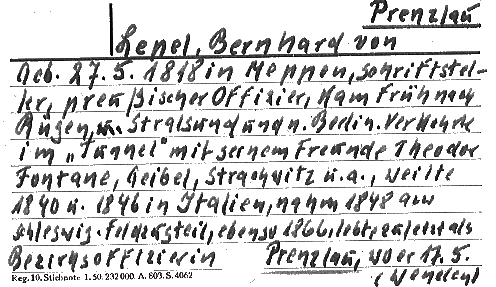 Prenzlau
Lepel, Bernhard von
Geb. 27.5.1818 in Meppen, Schriftstel-
ler, preußischer Offizier, kam früh nach
Rügen, u. Stralsund und n. Berlin. Verkehrte
im „Tunnel" mit seinem Freunde Theodor
Fontane, Geibel, Strachwitz u.a., weilte
1840 u. 1846 in Italien, nahm 1848 am
schleswig. Feldzug teil, ebenso 1866, lebte zuletzt als
Bezirksoffizier in Prenzlau, wo er 17.5.
Reg. 10. Stichnote 1. 50. 232 000. A. 803. S. 4062
(wenden)